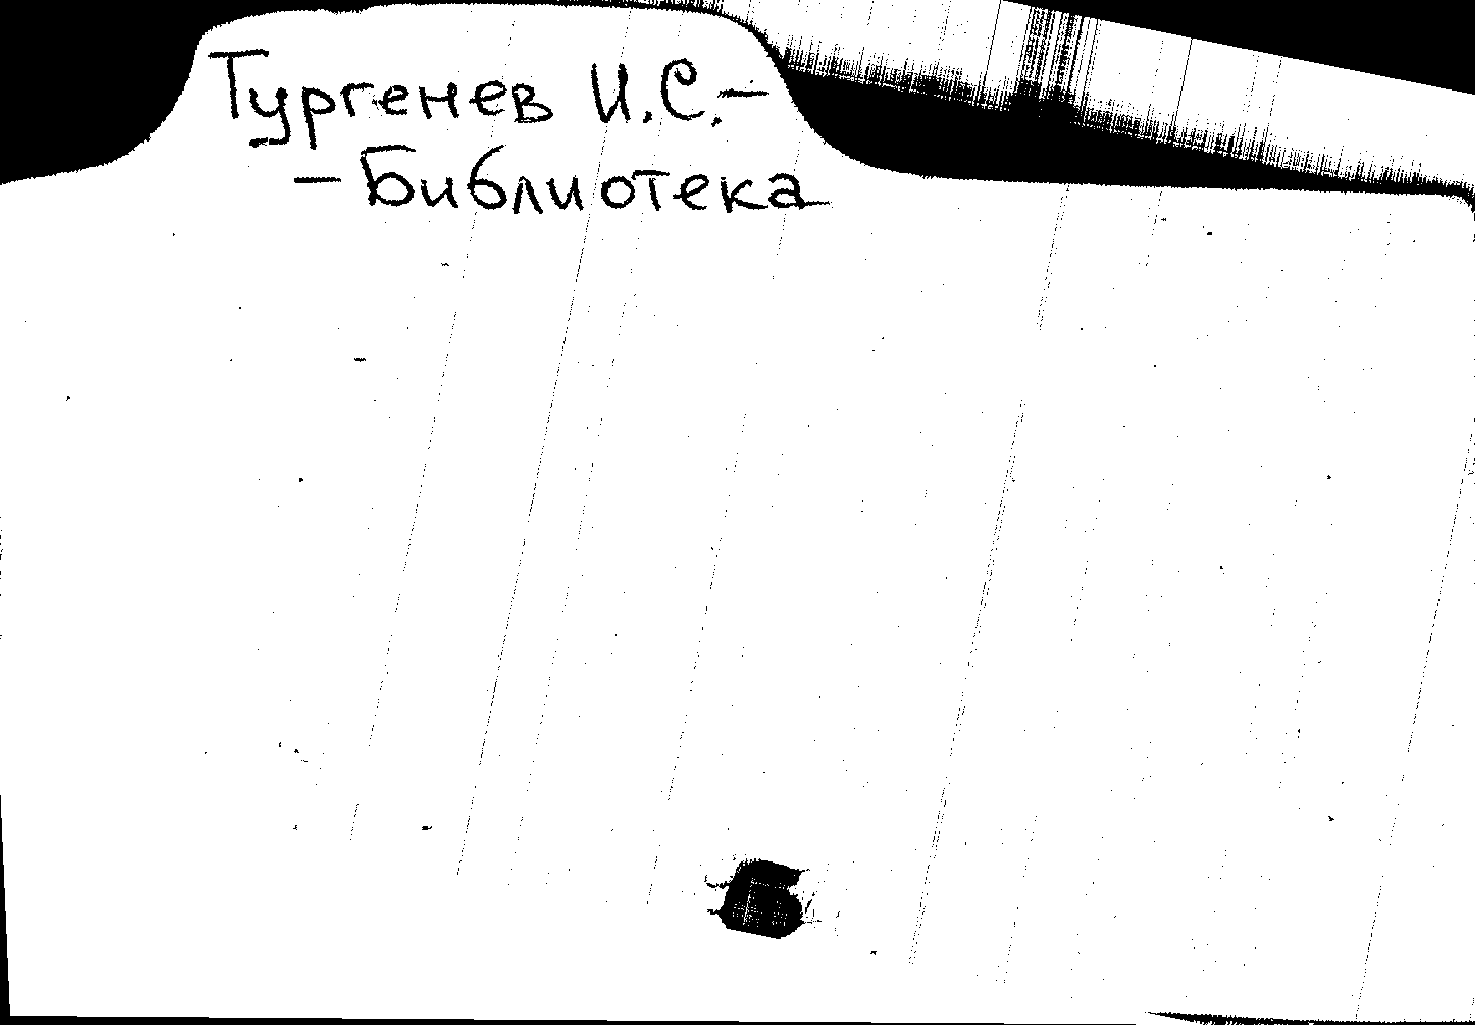 Тургенев И.С.–
– Библиотека